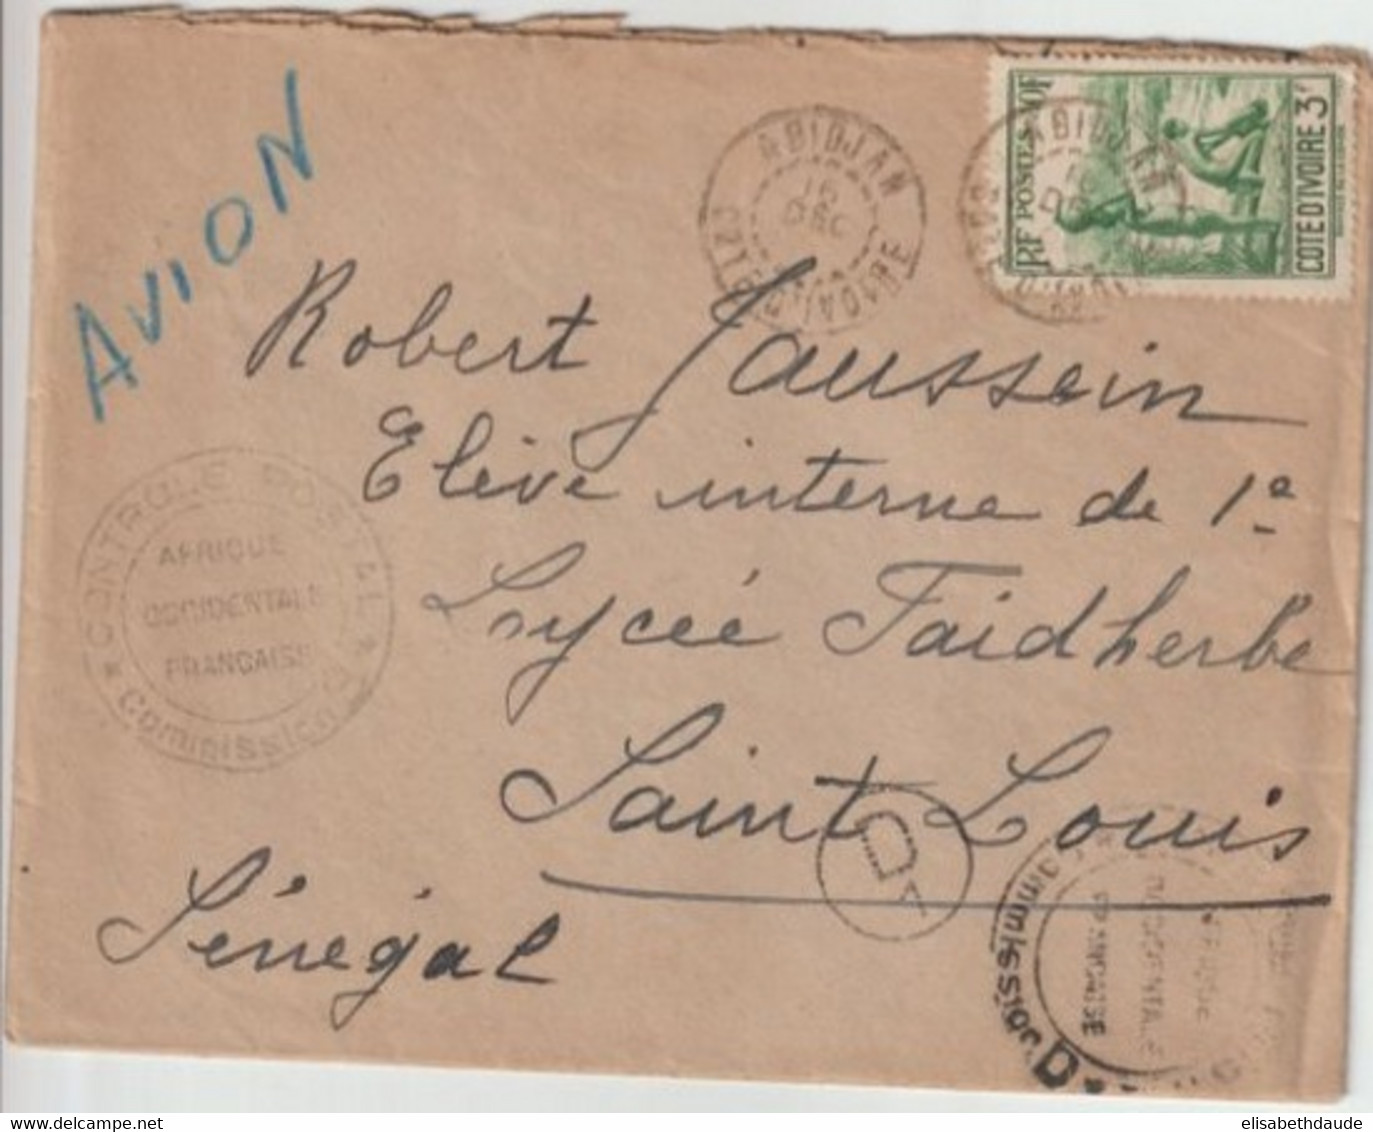 AVION
ABIDJAN
16
DEC
CÔTE D'IVOIRE
ABIDJAN
RF POSTES AOF
COTE D'IVOIRE 3F
Robert Jaussein
Elève interne de 1e
Lycée Faidherbe
Saint Louis
Sénégal
CONTROLE POSTAL
AFRIQUE
OCCIDENTALE
FRANCAISE
Commission D
D
Commission D
AFRIQUE
OCCIDENTALE
FRANCAISE
elisabethdaude